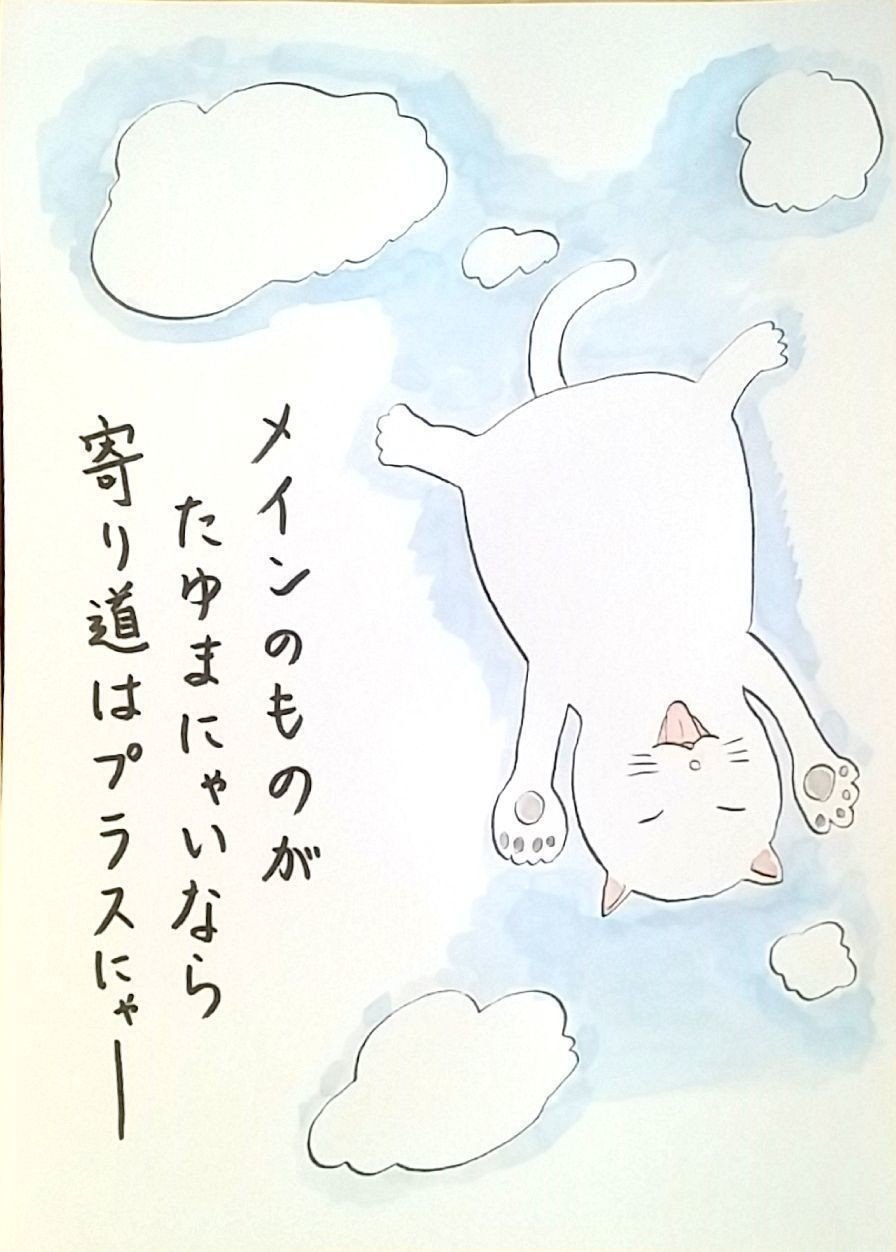 メインのものが
たゆまにゃいなら
寄り道はプラスにゃー